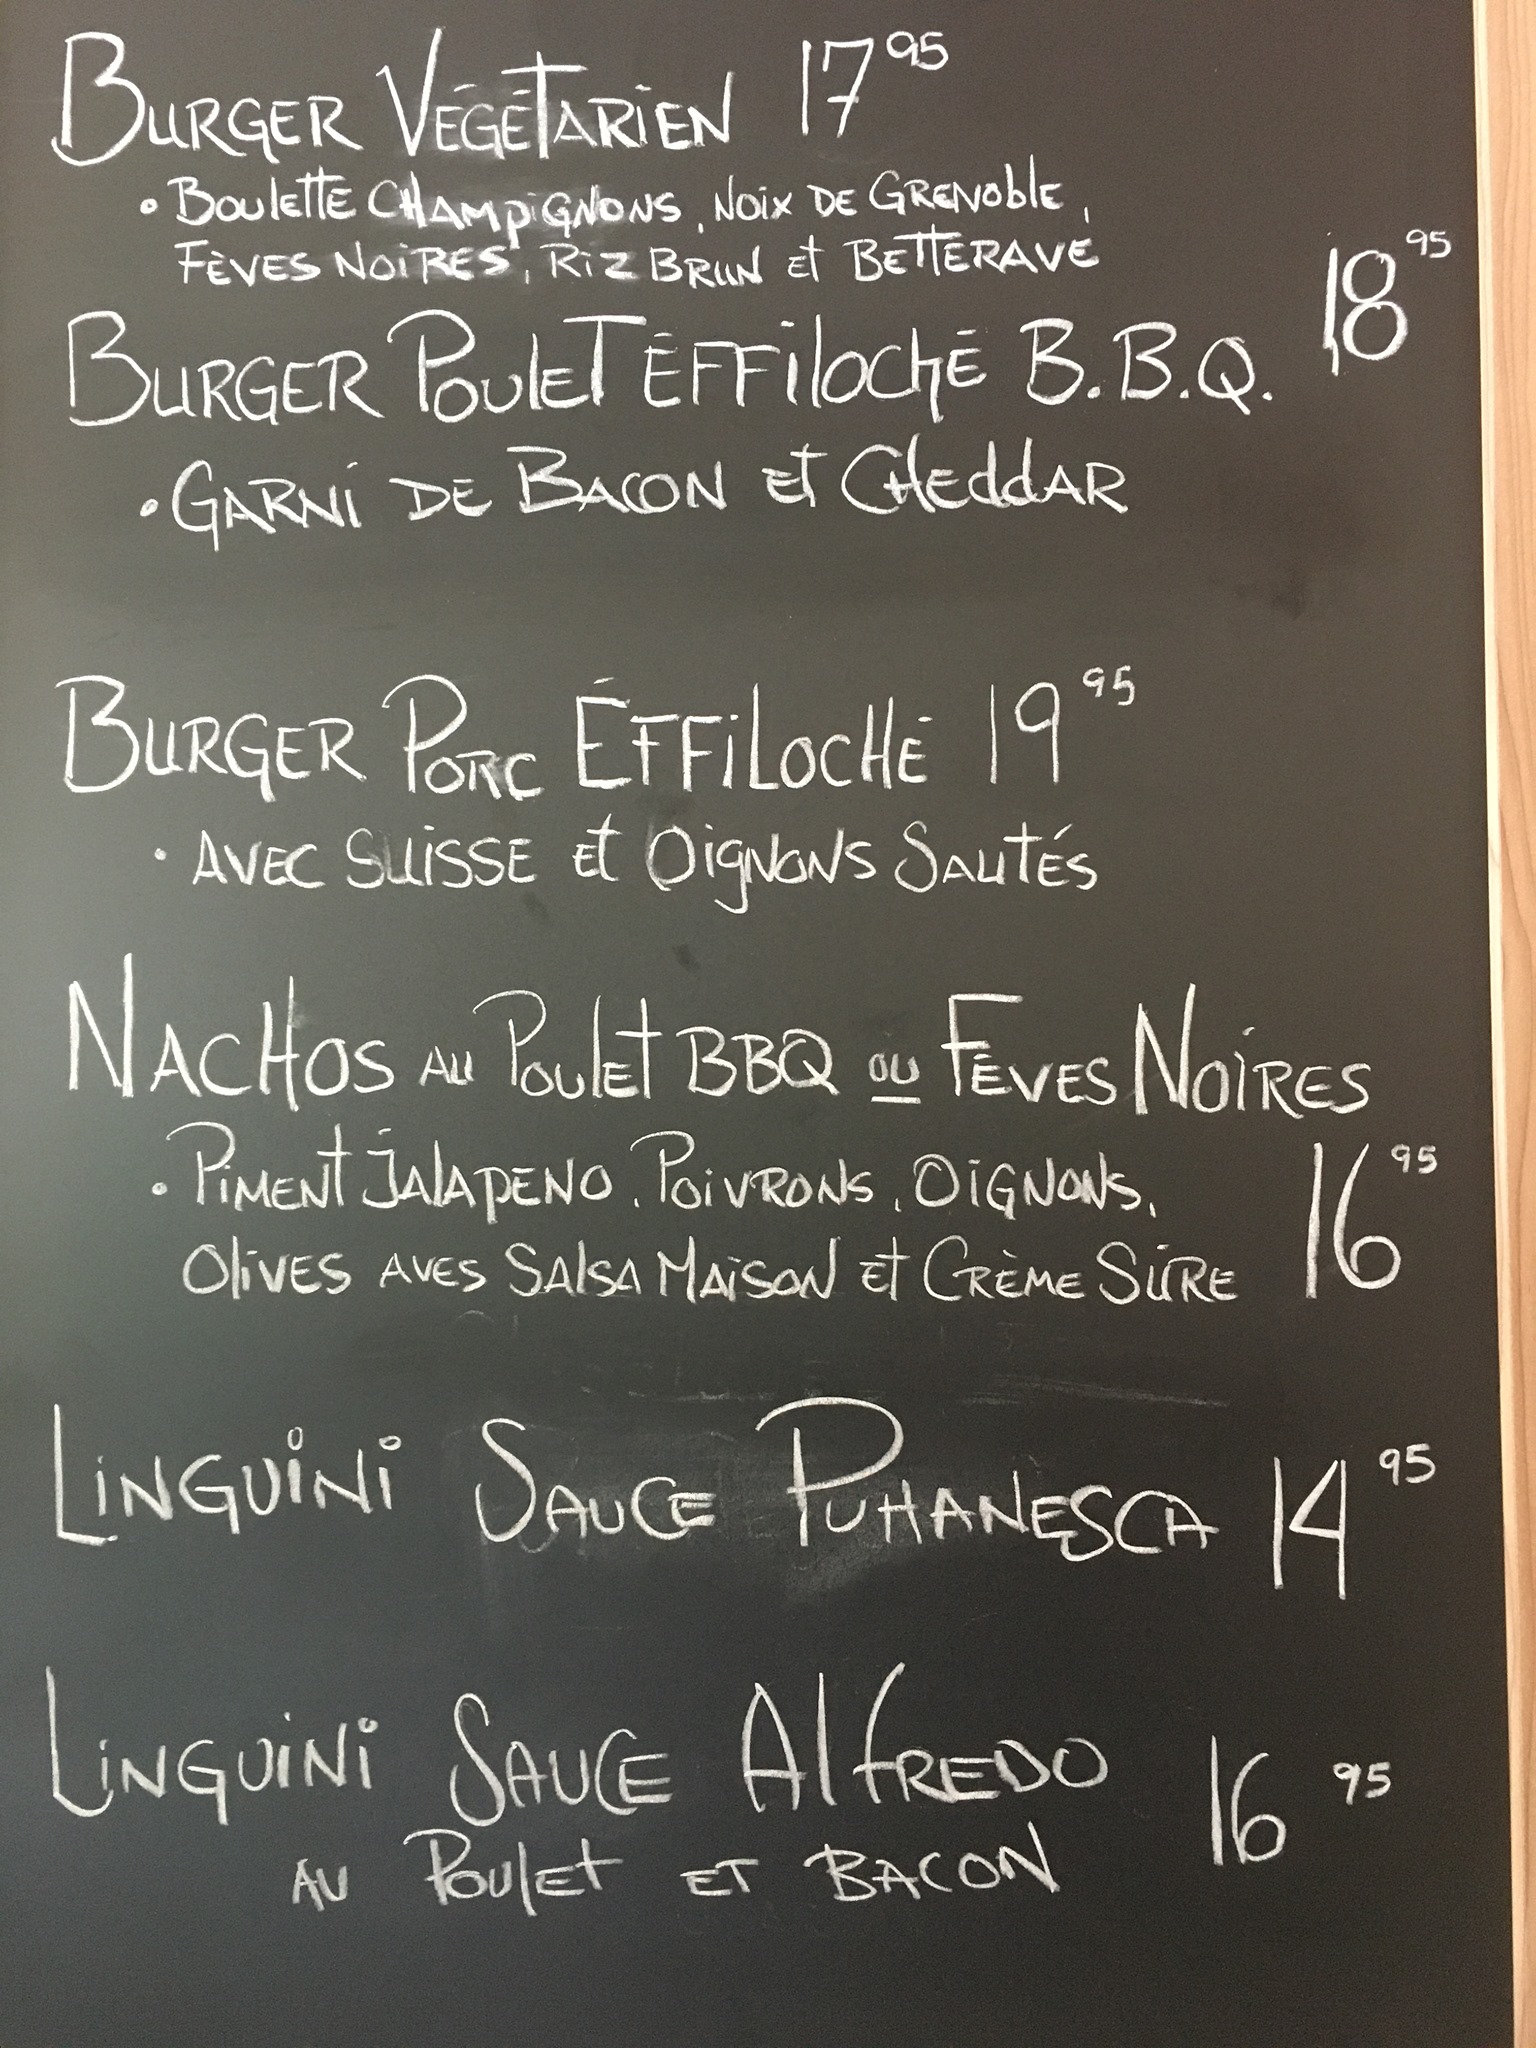 BURGER VÉGÉTARIEN 17 95
• BOULETTE CHAMPIGNONS, NOIX DE GRENOBLE,
FÈVES NOIRES, RIZ BRUN ET BETTERAVE
BURGER POULET ÉFFILOCHÉ B.B.Q. 18 95
• GARNI DE BACON ET CHEDDAR
BURGER PORC ÉFFILOCHÉ 19 95
• AVEC SUISSE ET OIGNONS SAUTÉS
NACHOS AU POULET BBQ OU FÈVES NOIRES
• PIMENT JALAPENO, POIVRONS, OIGNONS,
OLIVES AVES SALSA MAISON ET CRÈME SÛRE 16 95
LINGUINI SAUCE PUHANESCA 14 95
LINGUINI SAUCE ALFREDO 16 95
AU POULET ET BACON